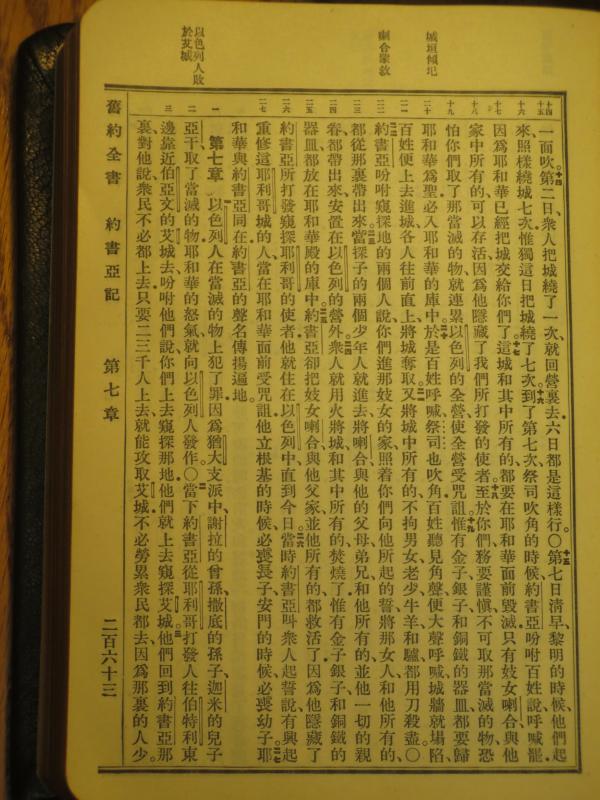 城垣傾圮
喇合蒙救
以色列人敗
於艾城
十四
十五
十六
十七
十八
十九
二十
二一
二二
二三
二四
二五
二六
二七
一
二
三
一面吹。第二日、衆人把城繞了一次、就回營裏去、六日都是這樣行。○第七日清早、黎明的時候、他們起
來、照樣繞城七次、惟獨這日把城繞了七次。到了第七次、祭司吹角的時候、約書亞吩咐百姓說、呼喊罷、
因爲耶和華已經把城交給你們了。這城和其中所有的、都要在耶和華面前毀滅、只有妓女喇合與他
家中所有的可以存活、因爲他隱藏了我們所打發的使者。至於你們務要謹愼、不可取那當滅的物、恐
怕你們取了那當滅的物、就連累以色列的全營、使全營受咒詛。惟有金子、銀子、和銅鐵的器皿、都要歸
耶和華爲聖、必入耶和華的庫中。於是百姓呼喊、祭司也吹角、百姓聽見角聲、便大聲呼喊、城牆就塌陷、
百姓便上去進城、各人往前直上、將城奪取。又將城中所有的、不拘男女老少、牛羊和驢、都用刀殺盡。○
約書亞吩咐窺探地的兩個人說、你們進那妓女的家、照着你們向他所起的誓、將那女人和他所有的、
都從那裏帶出來。當探子的兩個少年人就進去、將喇合與他的父母、弟兄、和他所有的、並他一切的親
眷、都帶出來、安置在以色列的營外。衆人就用火將城和其中所有的焚燒了、惟有金子、銀子、和銅鐵的
器皿、都放在耶和華殿的庫中。約書亞卻把妓女喇合與他父家、並他所有的、都救活了、因爲他隱藏了
約書亞所打發窺探耶利哥的使者、他就住在以色列中、直到今日。當時約書亞叫衆人起誓說、有興起
重修這耶利哥城的人、當在耶和華面前受咒詛、他立根基的時候、必喪長子、安門的時候、必喪幼子。耶
和華與約書亞同在、約書亞的聲名傳揚遍地。
第七章 以色列人在當滅的物上犯了罪、因爲猶大支派中、謝拉的曾孫、撒底的孫子、迦米的兒子
亞干取了當滅的物、耶和華的怒氣就向以色列人發作。○當下約書亞從耶利哥打發人往伯特利東
邊靠近伯亞文的艾城去、吩咐他們說、你們上去窺探那地、他們就上去窺探艾城。他們回到約書亞那
裏、對他說、衆民不必都上去、只要二三千人上去、就能攻取艾城、不必勞累衆民都去、因爲那裏的人少。
舊約全書 約書亞記 第七章 二百六十三